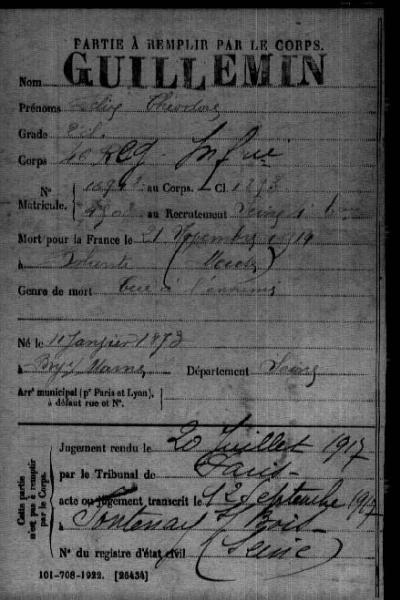 PARTIE À REMPLIR PAR LE CORPS.
GUILLEMIN
Nom
Prénoms Félix Théodore
Grade
Corps 46 Rég. Inf rie
N° au Corps. — Cl. 1893
Matricule. au Recrutement Seine
Mort pour la France le 21 Novembre 1914
à Bolante (Meuse)
Genre de mort Tué à l'ennemi
Né le 11 Janvier 1873
à Bry s/ Marne Département Seine
Arr^t municipal (p^r Paris et Lyon),
à défaut rue et N°.
Cette partie
n'est pas à remplir
par le Corps.
Jugement rendu le 20 Juillet 1917
par le Tribunal de Paris
acte ou jugement transcrit le 12 Septembre 1917
à Fontenay s/ Bois
(Seine)
N° du registre d'état civil
101-708-1922. [26434]